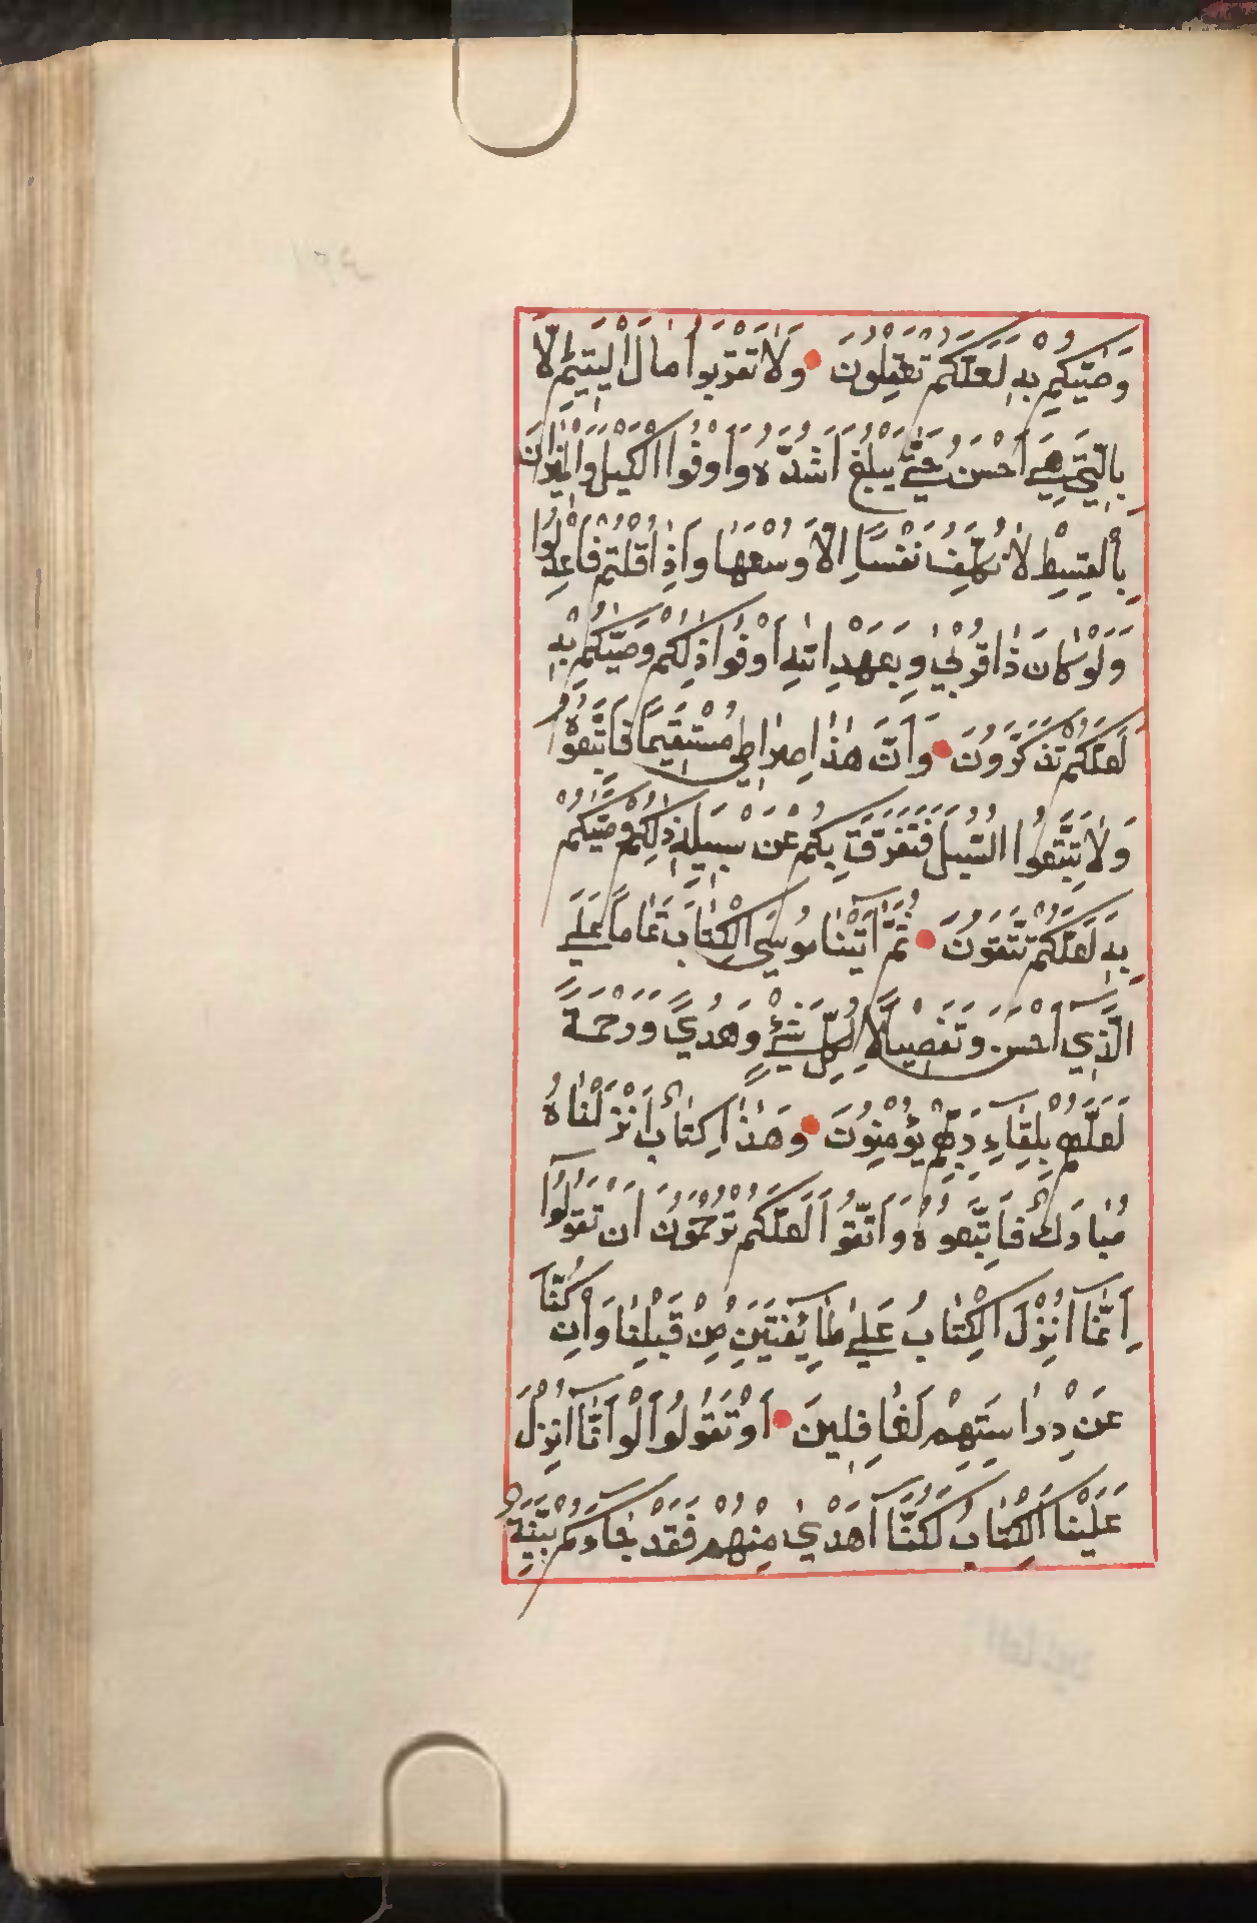 وَصّٰيكُمْ بِهِ لَعَلَّكُمْ تَعْقِلُونَ وَلَا تَقْرَبُوا مَالَ الْيَتِيمِ اِلَّا
بِالَّتِي هِيَ اَحْسَنُ حَتّٰى يَبْلُغَ اَشُدَّهُ وَاَوْفُوا الْكَيْلَ وَالْمِيزَانَ
بِالْقِسْطِ لَا نُكَلِّفُ نَفْسًا اِلَّا وُسْعَهَا وَاِذَا قُلْتُمْ فَاعْدِلُوا
وَلَوْ كَانَ ذَا قُرْبٰي وَبِعَهْدِ اللّٰهِ اَوْفُوا ذٰلِكُمْ وَصّٰيكُمْ بِهِ
لَعَلَّكُمْ تَذَكَّرُونَ وَاَنَّ هٰذَا صِرَاطِي مُسْتَقِيمًا فَاتَّبِعُوهُ
وَلَا تَتَّبِعُوا السُّبُلَ فَتَفَرَّقَ بِكُمْ عَنْ سَبِيلِهِ ذٰلِكُمْ وَصّٰيكُمْ
بِهِ لَعَلَّكُمْ تَتَّقُونَ ثُمَّ اٰتَيْنَا مُوسَي الْكِتَابَ تَمَامًا عَلَي
الَّذِي اَحْسَنَ وَتَفْصِيلًا لِكُلِّ شَيْءٍ وَهُدًي وَرَحْمَةً
لَعَلَّهُمْ بِلِقَاءِ رَبِّهِمْ يُؤْمِنُونَ وَهٰذَا كِتَابٌ اَنْزَلْنَاهُ
مُبَارَكٌ فَاتَّبِعُوهُ وَاتَّقُوا لَعَلَّكُمْ تُرْحَمُونَ اَنْ تَقُولُوا
اِنَّمَا اُنْزِلَ الْكِتَابُ عَلٰي طَائِفَتَيْنِ مِنْ قَبْلِنَا وَاِنْ كُنَّا
عَنْ دِرَاسَتِهِمْ لَغَافِلِينَ اَوْ تَقُولُوا لَوْ اَنَّا اُنْزِلَ
عَلَيْنَا الْكِتَابُ لَكُنَّا اَهْدٰي مِنْهُمْ فَقَدْ جَاءَكُمْ بَيِّنَةٌ